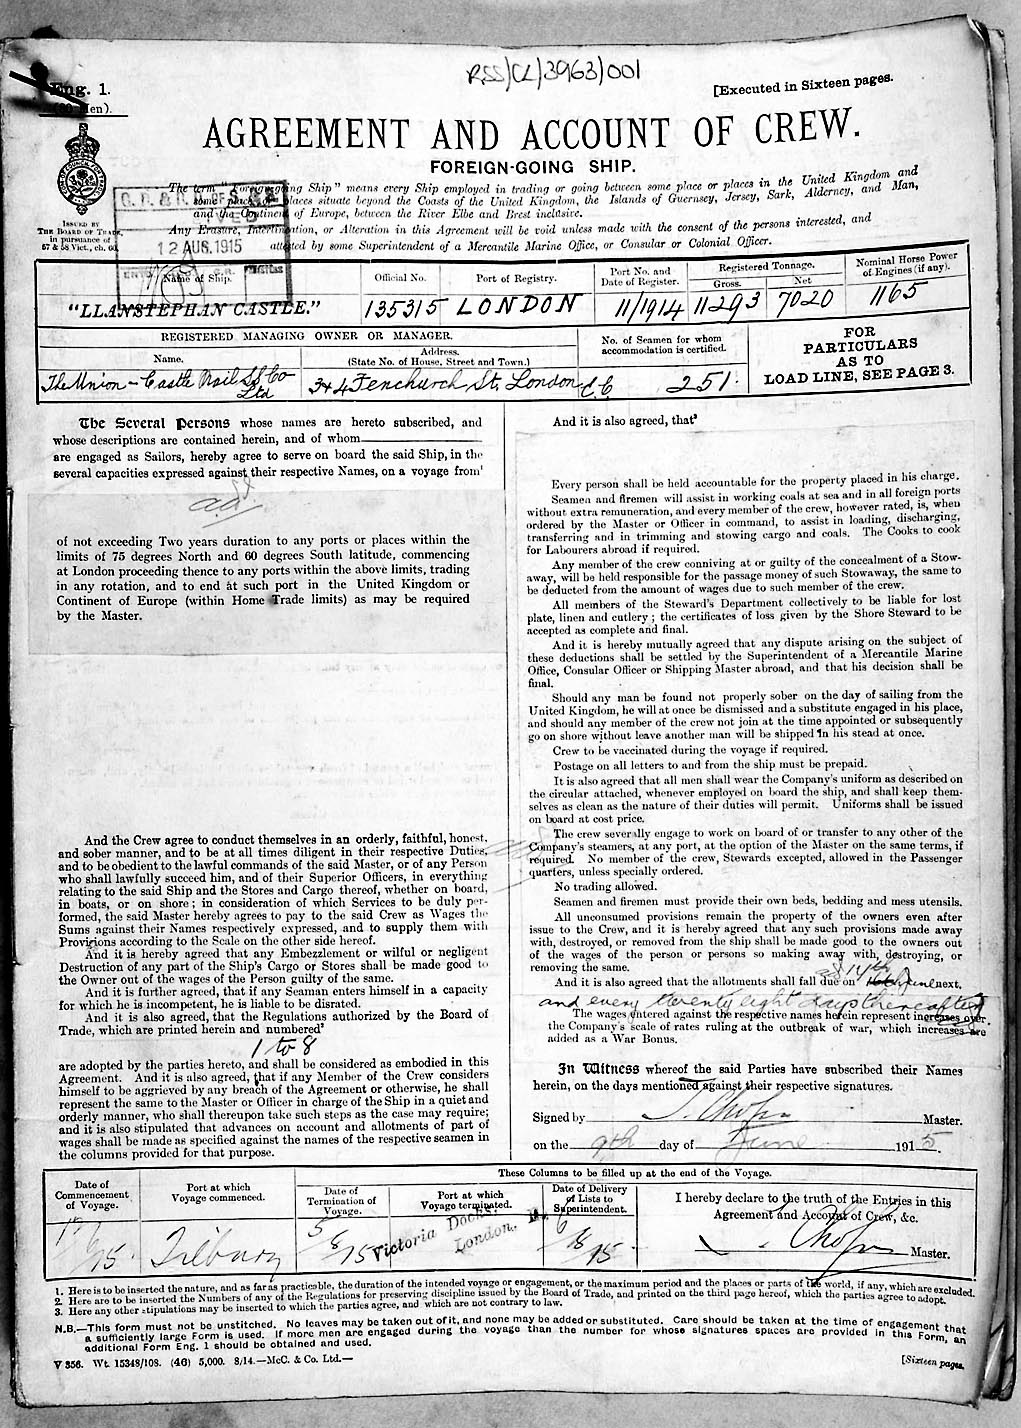 RSS/CL/3963/001
Eng. 1.
[Executed in Sixteen pages.
AGREEMENT AND ACCOUNT OF CREW.
FOREIGN-GOING SHIP.
The term "Foreign-going Ship" means every Ship employed in trading or going between some place or places in the United Kingdom and
some place or places situate beyond the Coasts of the United Kingdom, the Islands of Guernsey, Jersey, Sark, Alderney, and Man,
and the Continent of Europe, between the River Elbe and Brest inclusive.
Any Erasure, Interlineation, or Alteration in this Agreement will be void unless made with the consent of the persons interested, and
attested by some Superintendent of a Mercantile Marine Office, or Consular or Colonial Officer.
ISSUED BY
THE BOARD OF TRADE,
in pursuance of
57 & 58 Vict., ch. 60.
12 AUG. 1915
Name of Ship.
Official No.
Port of Registry.
Port No. and
Date of Register.
Registered Tonnage.
Gross.
Net
Nominal Horse Power
of Engines (if any).
"LLANSTEPHAN CASTLE."
135315
LONDON
11/1914
11293
7020
1165
REGISTERED MANAGING OWNER OR MANAGER.
Name.
Address.
(State No. of House, Street and Town.)
No. of Seamen for whom
accommodation is certified.
FOR
PARTICULARS
AS TO
LOAD LINE, SEE PAGE 3.
The Union-Castle Mail SS Co
Ltd
3 & 4 Fenchurch St, London E.C
251.
The Several Persons whose names are hereto subscribed, and
whose descriptions are contained herein, and of whom
are engaged as Sailors, hereby agree to serve on board the said Ship, in the
several capacities expressed against their respective Names, on a voyage from¹
of not exceeding Two years duration to any ports or places within the
limits of 75 degrees North and 60 degrees South latitude, commencing
at London proceeding thence to any ports within the above limits, trading
in any rotation, and to end at such port in the United Kingdom or
Continent of Europe (within Home Trade limits) as may be required
by the Master.
And the Crew agree to conduct themselves in an orderly, faithful, honest,
and sober manner, and to be at all times diligent in their respective Duties,
and to be obedient to the lawful commands of the said Master, or of any Person
who shall lawfully succeed him, and of their Superior Officers, in everything
relating to the said Ship and the Stores and Cargo thereof, whether on board,
in boats, or on shore; in consideration of which Services to be duly per-
formed, the said Master hereby agrees to pay to the said Crew as Wages the
Sums against their Names respectively expressed, and to supply them with
Provisions according to the Scale on the other side hereof.
And it is hereby agreed that any Embezzlement or wilful or negligent
Destruction of any part of the Ship's Cargo or Stores shall be made good to
the Owner out of the wages of the Person guilty of the same.
And it is further agreed, that if any Seaman enters himself in a capacity
for which he is incompetent, he is liable to be disrated.
And it is also agreed, that the Regulations authorized by the Board of
Trade, which are printed herein and numbered²
1 to 8
are adopted by the parties hereto, and shall be considered as embodied in this
Agreement. And it is also agreed, that if any Member of the Crew considers
himself to be aggrieved by any breach of the Agreement or otherwise, he shall
represent the same to the Master or Officer in charge of the Ship in a quiet and
orderly manner, who shall thereupon take such steps as the case may require;
and it is also stipulated that advances on account and allotments of part of
wages shall be made as specified against the names of the respective seamen in
the columns provided for that purpose.
And it is also agreed, that³
Every person shall be held accountable for the property placed in his charge.
Seamen and firemen will assist in working coals at sea and in all foreign ports
without extra remuneration, and every member of the crew, however rated, is, when
ordered by the Master or Officer in command, to assist in loading, discharging,
transferring and in trimming and stowing cargo and coals. The Cooks to cook
for Labourers abroad if required.
Any member of the crew conniving at or guilty of the concealment of a Stow-
away, will be held responsible for the passage money of such Stowaway, the same to
be deducted from the amount of wages due to such member of the crew.
All members of the Steward's Department collectively to be liable for lost
plate, linen and cutlery; the certificates of loss given by the Shore Steward to be
accepted as complete and final.
And it is hereby mutually agreed that any dispute arising on the subject of
these deductions shall be settled by the Superintendent of a Mercantile Marine
Office, Consular Officer or Shipping Master abroad, and that his decision shall be
final.
Should any man be found not properly sober on the day of sailing from the
United Kingdom, he will at once be dismissed and a substitute engaged in his place,
and should any member of the crew not join at the time appointed or subsequently
go on shore without leave another man will be shipped in his stead at once.
Crew to be vaccinated during the voyage if required.
Postage on all letters to and from the ship must be prepaid.
It is also agreed that all men shall wear the Company's uniform as described on
the circular attached, whenever employed on board the ship, and shall keep them-
selves as clean as the nature of their duties will permit. Uniforms shall be issued
on board at cost price.
The crew severally engage to work on board of or transfer to any other of the
Company's steamers, at any port, at the option of the Master on the same terms, if
required. No member of the crew, Stewards excepted, allowed in the Passenger
quarters, unless specially ordered.
No trading allowed.
Seamen and firemen must provide their own beds, bedding and mess utensils.
All unconsumed provisions remain the property of the owners even after
issue to the Crew, and it is hereby agreed that any such provisions made away
with, destroyed, or removed from the ship shall be made good to the owners out
of the wages of the person or persons so making away with, destroying, or
removing the same.
And it is also agreed that the allotments shall fall due on June next,
and every twenty eight days thereafter
The wages entered against the respective names herein represent increases over
the Company's scale of rates ruling at the outbreak of war, which increases are
added as a War Bonus.
In Witness whereof the said Parties have subscribed their Names
herein, on the days mentioned against their respective signatures.
Signed by Master.
on the 9th day of June 1915.
These Columns to be filled up at the end of the Voyage.
Date of
Commencement
of Voyage.
Port at which
Voyage commenced.
Date of
Termination of
Voyage.
Port at which
Voyage terminated.
Date of Delivery
of Lists to
Superintendent.
I hereby declare to the truth of the Entries in this
Agreement and Account of Crew, &c.
Tilbury
5/8/15
Victoria Docks,
London. E.
Master.
1. Here is to be inserted the nature, and as far as practicable, the duration of the intended voyage or engagement, or the maximum period and the places or parts of the world, if any, which are excluded.
2. Here are to be inserted the Numbers of any of the Regulations for preserving discipline issued by the Board of Trade, and printed on the third page hereof, which the parties agree to adopt.
3. Here any other stipulations may be inserted to which the parties agree, and which are not contrary to law.
N.B.—This form must not be unstitched. No leaves may be taken out of it, and none may be added or substituted. Care should be taken at the time of engagement that
a sufficiently large Form is used. If more men are engaged during the voyage than the number for whose signatures spaces are provided in this Form, an
additional Form Eng. 1 should be obtained and used.
V 356. Wt. 15348/108. (46) 5,000. 8/14.—McC. & Co. Ltd.—
[Sixteen pages.